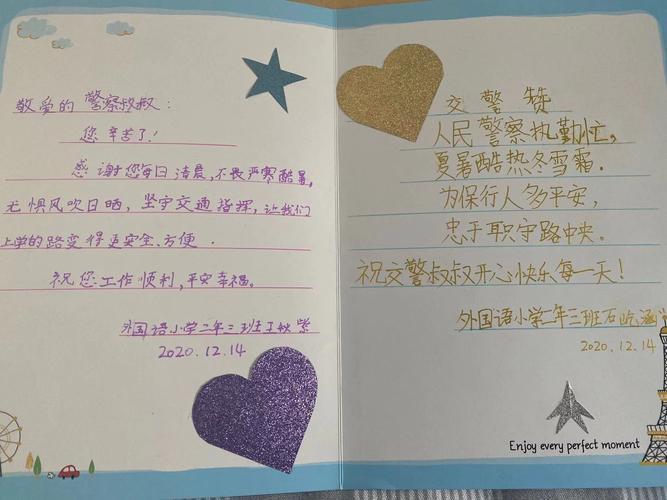 敬爱的 警察叔叔：
您 辛苦了！
感谢您每日清晨，不畏严寒酷暑，
无惧风吹日晒，坚守交通指挥，让我们
上学的路变得更安全、方便．
祝您工作顺利，平安幸福。
外国语小学二年三班王
2020.12.14
交 警 赞
人民警察执勤忙，
夏暑酷热冬雪霜．
为保行人多平安，
忠于职守路中央．
祝交警叔叔开心快乐每一天！
外国语小学二年三班石屹涵
2020.12.14
Enjoy every perfect moment